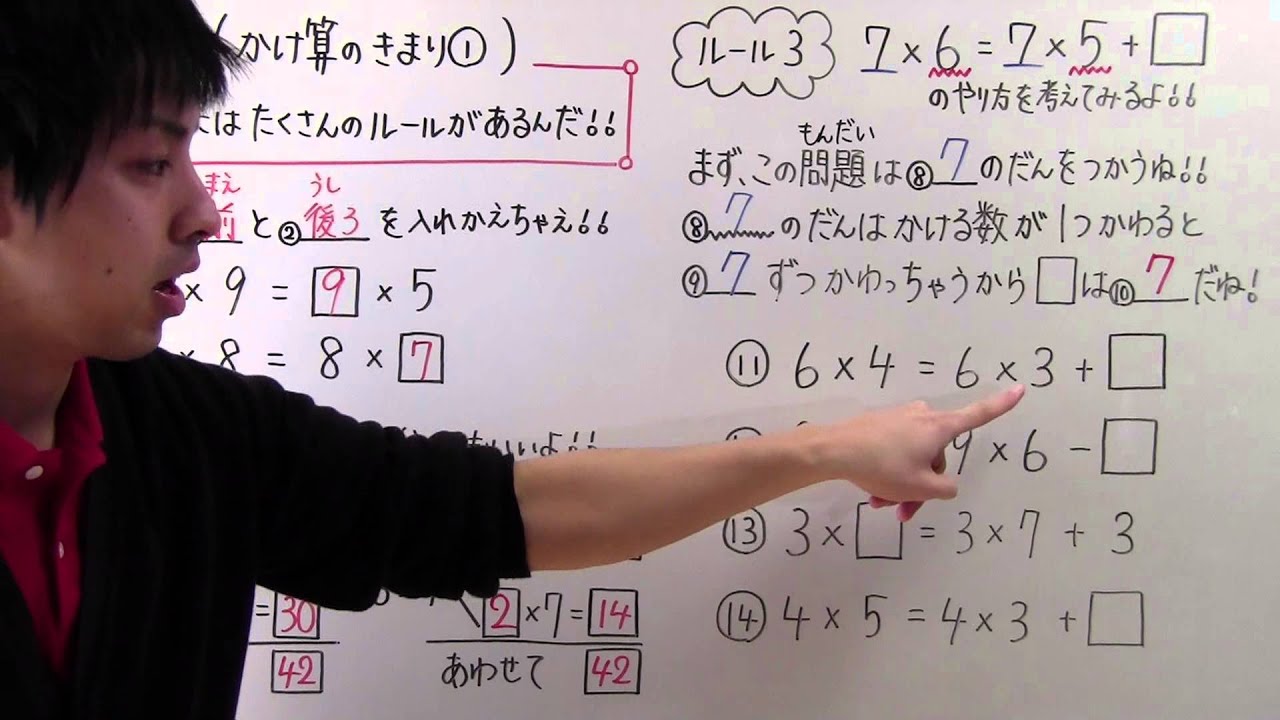 (かけ算のきまり①)
はたくさんのルールがあるんだ!!
まえ うし
前と②後ろを入れかえちゃえ!!
× 9 = 9 × 5
× 8 = 8 × 7
もいいよ!!
= 30
42
2 × 7 = 14
あわせて 42
ルール3 7 × 6 = 7 × 5 + □
のやり方を考えてみるよ!!
もんだい
まず、この問題は⑧7のだんをつかうね!!
⑧7のだんはかける数が1つかわると
⑨7ずつかわっちゃうから□は⑩7だね!
⑪ 6 × 4 = 6 × 3 + □
9 × 6 - □
⑬ 3 × □ = 3 × 7 + 3
⑭ 4 × 5 = 4 × 3 + □